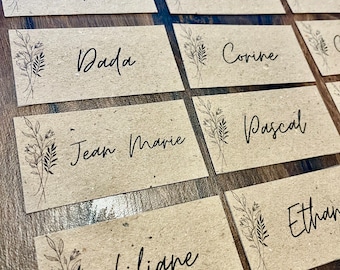 Dada
Corine
Jean Marie
Pascal
Ethan